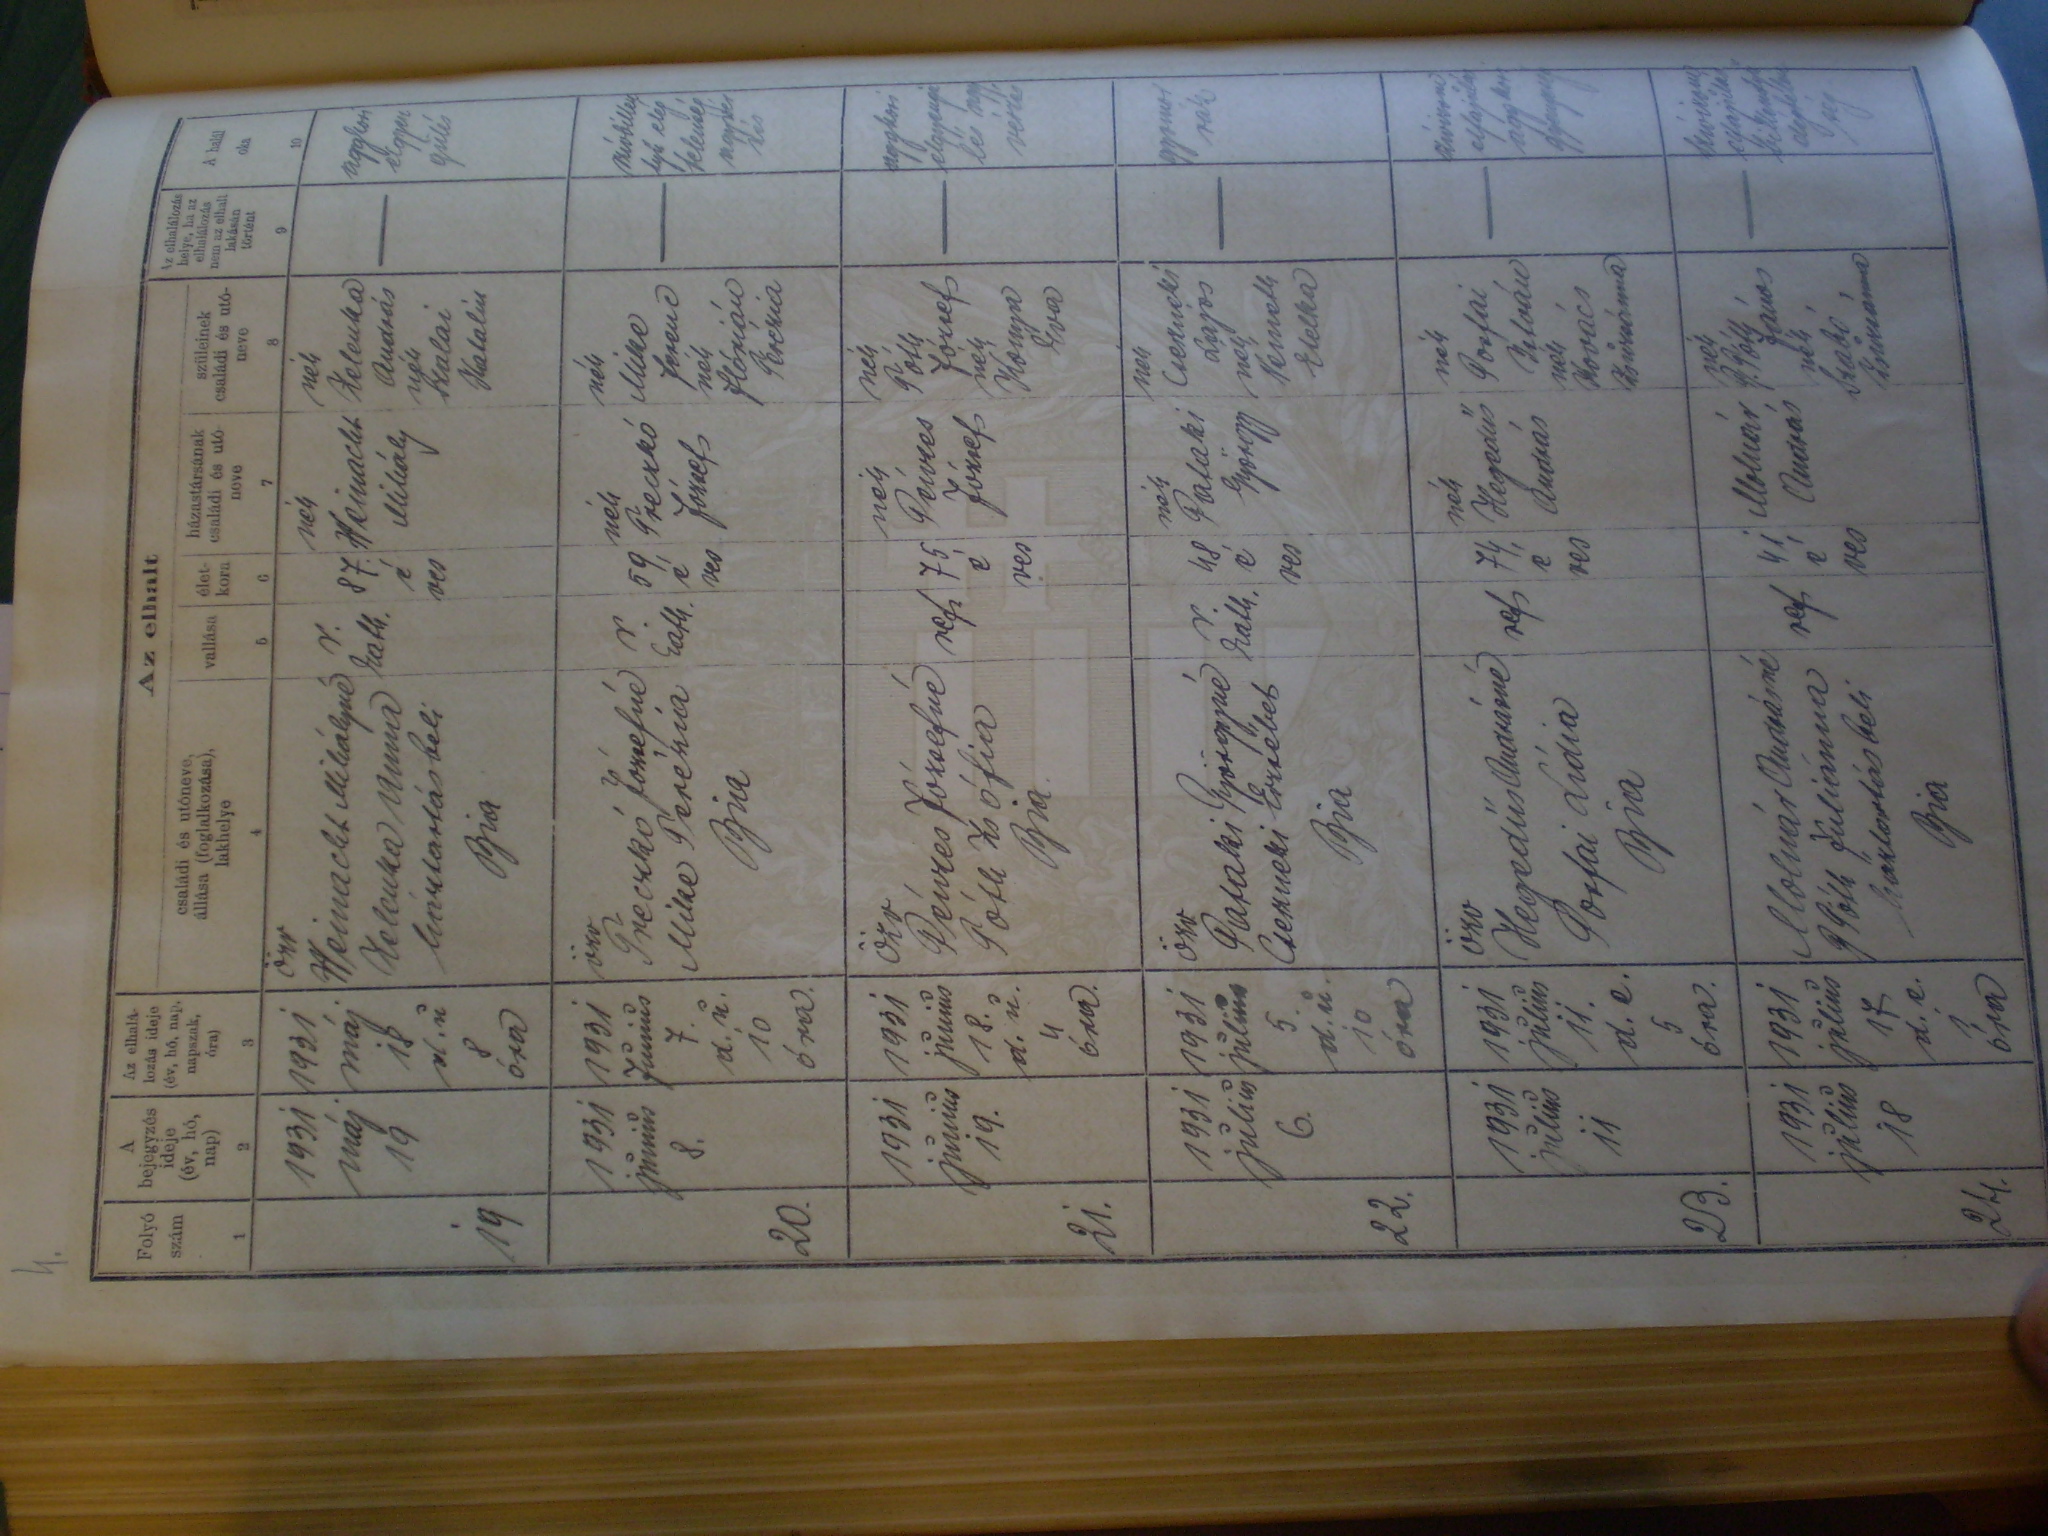 4.
Az elhalt
Folyó
szám
A
bejegyzés
ideje
(év, hó,
nap)
Az elhalá-
lozás ideje
(év, hó, nap,
napszak,
óra)
családi és utóneve,
állása (foglalkozása),
lakhelye
vallása
élet-
kora
házastársának
családi és utó-
neve
szüleinek
családi és utó-
neve
Az elhalálozás
helye, ha az
elhalálozás
nem az elhalt
lakásán
történt
A halál
oka
1
2
3
4
5
6
7
8
9
10
19
1931
máj
19
1931
máj
18
d. u
8
óra
özv
Heinacht Mihályné
Zelenka Anna
háztartásbeli
Bia
r.
kath.
87.
é
ves
néh
Heinacht
Mihály
néh
Zelenka
András
néh
Kalai
Katalin
—
aggkori
elgyen
gülés
20.
1931
június
8.
1931
június
7.
d. u.
10
óra.
özv
Preczkó Józsefné
Mike Terézia
Bia
r.
kath.
59
é
ves
néh
Preczkó
József
néh
Mike
Ferenc
néh
Flórián
Terézia
—
szívbillen
tyű elég
telenség
21.
1931
június
19.
1931
június
18.
d. u.
4
óra.
özv
Pénzes Józsefné
Tóth Zsófia
Bia.
ref
75
é
ves
néh
Pénzes
József
néh
Tóth
József
néh
Konya
Éva
—
aggkori
22.
1931
július
6.
1931
július
5.
d. u.
10
óra
özv
Pataki Györgyné
Cserneki Erzsébet
Bia
r.
kath.
48,
é
ves
néh
Pataki
György
néh
Cserneki
Lajos
néh
Németh
Etelka
—
gyomor
rák
23.
1931
július
11
1931
július
11.
d. e.
5
óra.
özv
Hegedüs Andrásné
Pozsai Lídia
Bia
ref
74,
é
ves
néh
Hegedüs
András
néh
Pozsai
István
néh
Kovács
Zsuzsánna
—
24.
1931
július
18
1931
július
17
d. e.
óra
Molnár Andrásné
P Tóth Juliánna
háztartásbeli
Bia
ref
41
é
ves
Molnár
András
néh
P Tóth
János
néh
Szabó
Zsuzsánna
—